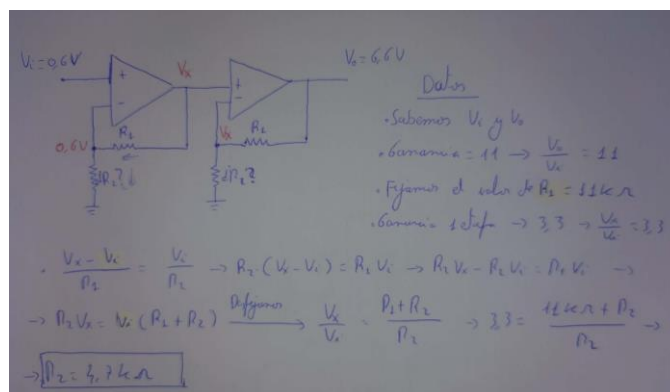 Vi=0,6V
Vx
Vo=6,6V
+
-
+
-
Vx
0,6V
R1
R1
¿R2?
¿R2?
Datos
• Sabemos Vi y Vo
• Ganancia = 11 → Vo/Vi = 11
• Fijamos el valor de R1 = 11kΩ
• Ganancia 1 etapa → 3,3 → Vx/Vi = 3,3
• (Vx - Vi)/R1 = Vi/R2 → R2·(Vx - Vi) = R1 Vi → R2 Vx - R2 Vi = R1 Vi →
→ R2 Vx = Vi (R1 + R2) → Vx/Vi = (R1 + R2)/R2 → 3,3 = (11kΩ + R2)/R2 →
→ R2 = 4,7kΩ